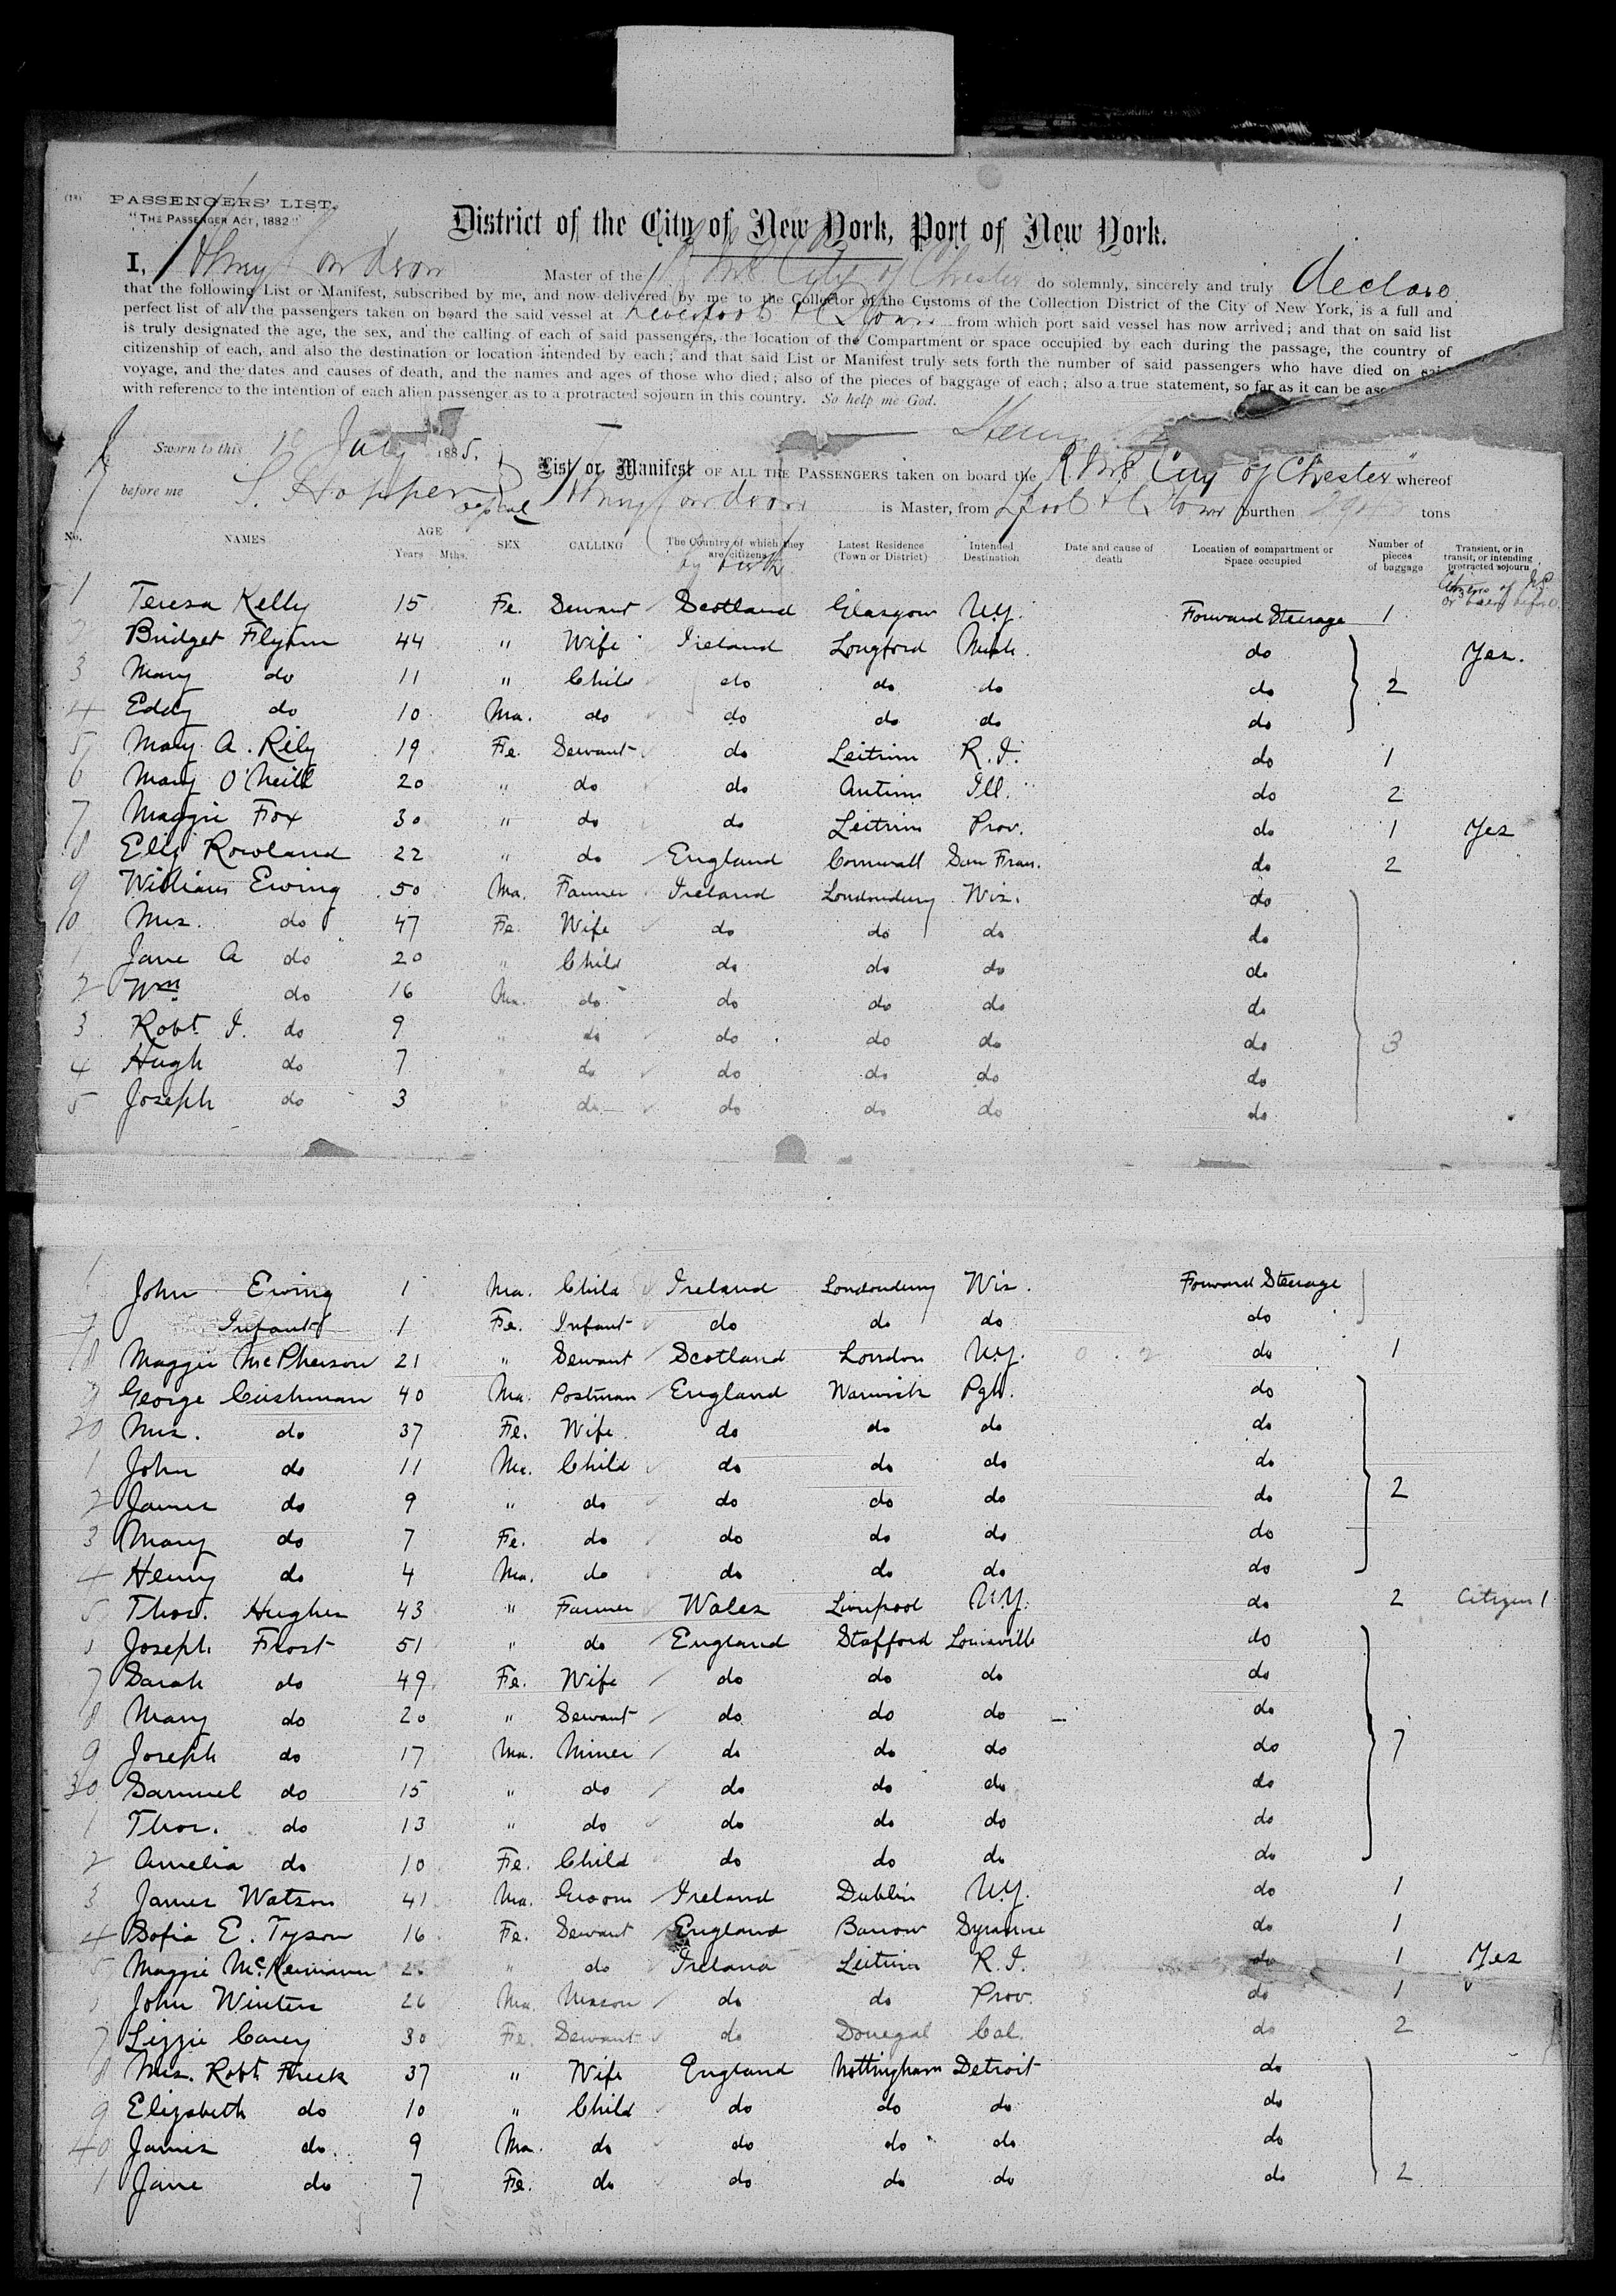 (18) PASSENGERS' LIST.
"THE PASSENGER ACT, 1882"
District of the City of New York, Port of New York.
I, Henry Condron Master of the R.M.S. City of Chester do solemnly, sincerely and truly declare
that the following List or Manifest, subscribed by me, and now delivered by me to the Collector of the Customs of the Collection District of the City of New York, is a full and
perfect list of all the passengers taken on board the said vessel at Liverpool & Q Town from which port said vessel has now arrived; and that on said list
is truly designated the age, the sex, and the calling of each of said passengers, the location of the Compartment or space occupied by each during the passage, the country of
citizenship of each, and also the destination or location intended by each; and that said List or Manifest truly sets forth the number of said passengers who have died on said
voyage, and the dates and causes of death, and the names and ages of those who died; also of the pieces of baggage of each; also a true statement, so far as it can be
with reference to the intention of each alien passenger as to a protracted sojourn in this country. So help me God.
Sworn to this July 1885,
before me S. Hopper
List or Manifest OF ALL THE PASSENGERS taken on board the R.M.S. City of Chester whereof
Henry Condron is Master, from L'pool & Q Town burthen tons
No. NAMES AGE Years Mths. SEX CALLING The Country of which they are citizens by birth Latest Residence (Town or District) Intended Destination Date and cause of death Location of compartment or Space occupied Number of pieces of baggage Transient, or in transit, or intending protracted sojourn
1 Teresa Kelly 15 Fe. Servant Scotland Glasgow N.Y. Forward Steerage 1
2 Bridget Flynn 44 " Wife Ireland Longford Mich. do Yes.
3 Mary do 11 " Child do do do do 2
4 Eddy do 10 Ma. do do do do do
5 Mary A. Rily 19 Fe. Servant do Leitrim R.I. do 1
6 Mary O'Neill 20 " do do Antrim Ill. do 2
7 Maggie Fox 30 " do do Leitrim Prov. do 1 Yes
8 Elly Rowland 22 " do England Cornwall San Fran. do 2
9 William Ewing 50 Ma. Farmer Ireland Londonderry Wis. do
10 Mrs. do 47 Fe. Wife do do do do
1 Jane A do 20 " Child do do do do
2 Wm do 16 Ma. do do do do do
3 Robt. J. do 9 " do do do do do 3
4 Hugh do 7 " do do do do do
5 Joseph do 3 " do do do do do
John Ewing 1 Ma. Child Ireland Londonderry Wis. Forward Steerage
7 Infant 1 Fe. Infant do do do do
18 Maggie McPherson 21 " Servant Scotland London N.Y. do 1
9 George Cushman 40 Ma. Postman England Warwick Pgh. do
20 Mrs. do 37 Fe. Wife do do do do
1 John do 11 Ma. Child do do do do
2 James do 9 " do do do do do 2
3 Mary do 7 Fe. do do do do do
4 Henry do 4 Ma. do do do do do
5 Thos. Hughes 43 " Farmer Wales Liverpool N.Y. do 2 Citizen
Joseph Frost 51 " do England Stafford Louisville do
7 Sarah do 49 Fe. Wife do do do do
8 Mary do 20 " Servant do do do do
9 Joseph do 17 Ma. Miner do do do do 7
30 Samuel do 15 " do do do do do
1 Thos. do 13 " do do do do do
2 Amelia do 10 Fe. Child do do do do
3 James Watson 41 Ma. Groom Ireland Dublin N.Y. do 1
4 Sofia E. Tyson 16 Fe. Servant England Barrow Syracuse do 1
5 Maggie " do Ireland Leitrim R.I. do 1 Yes
John Winters 26 Ma. Mason do do Prov. do 1
7 Lizzie Carey 30 Fe. Servant do Donegal Cal. do 2
8 Mrs. Robt. 37 " Wife England Nottingham Detroit do
9 Elizabeth do 10 " Child do do do do
40 James do 9 Ma. do do do do do
1 Jane do 7 Fe. do do do do do 2